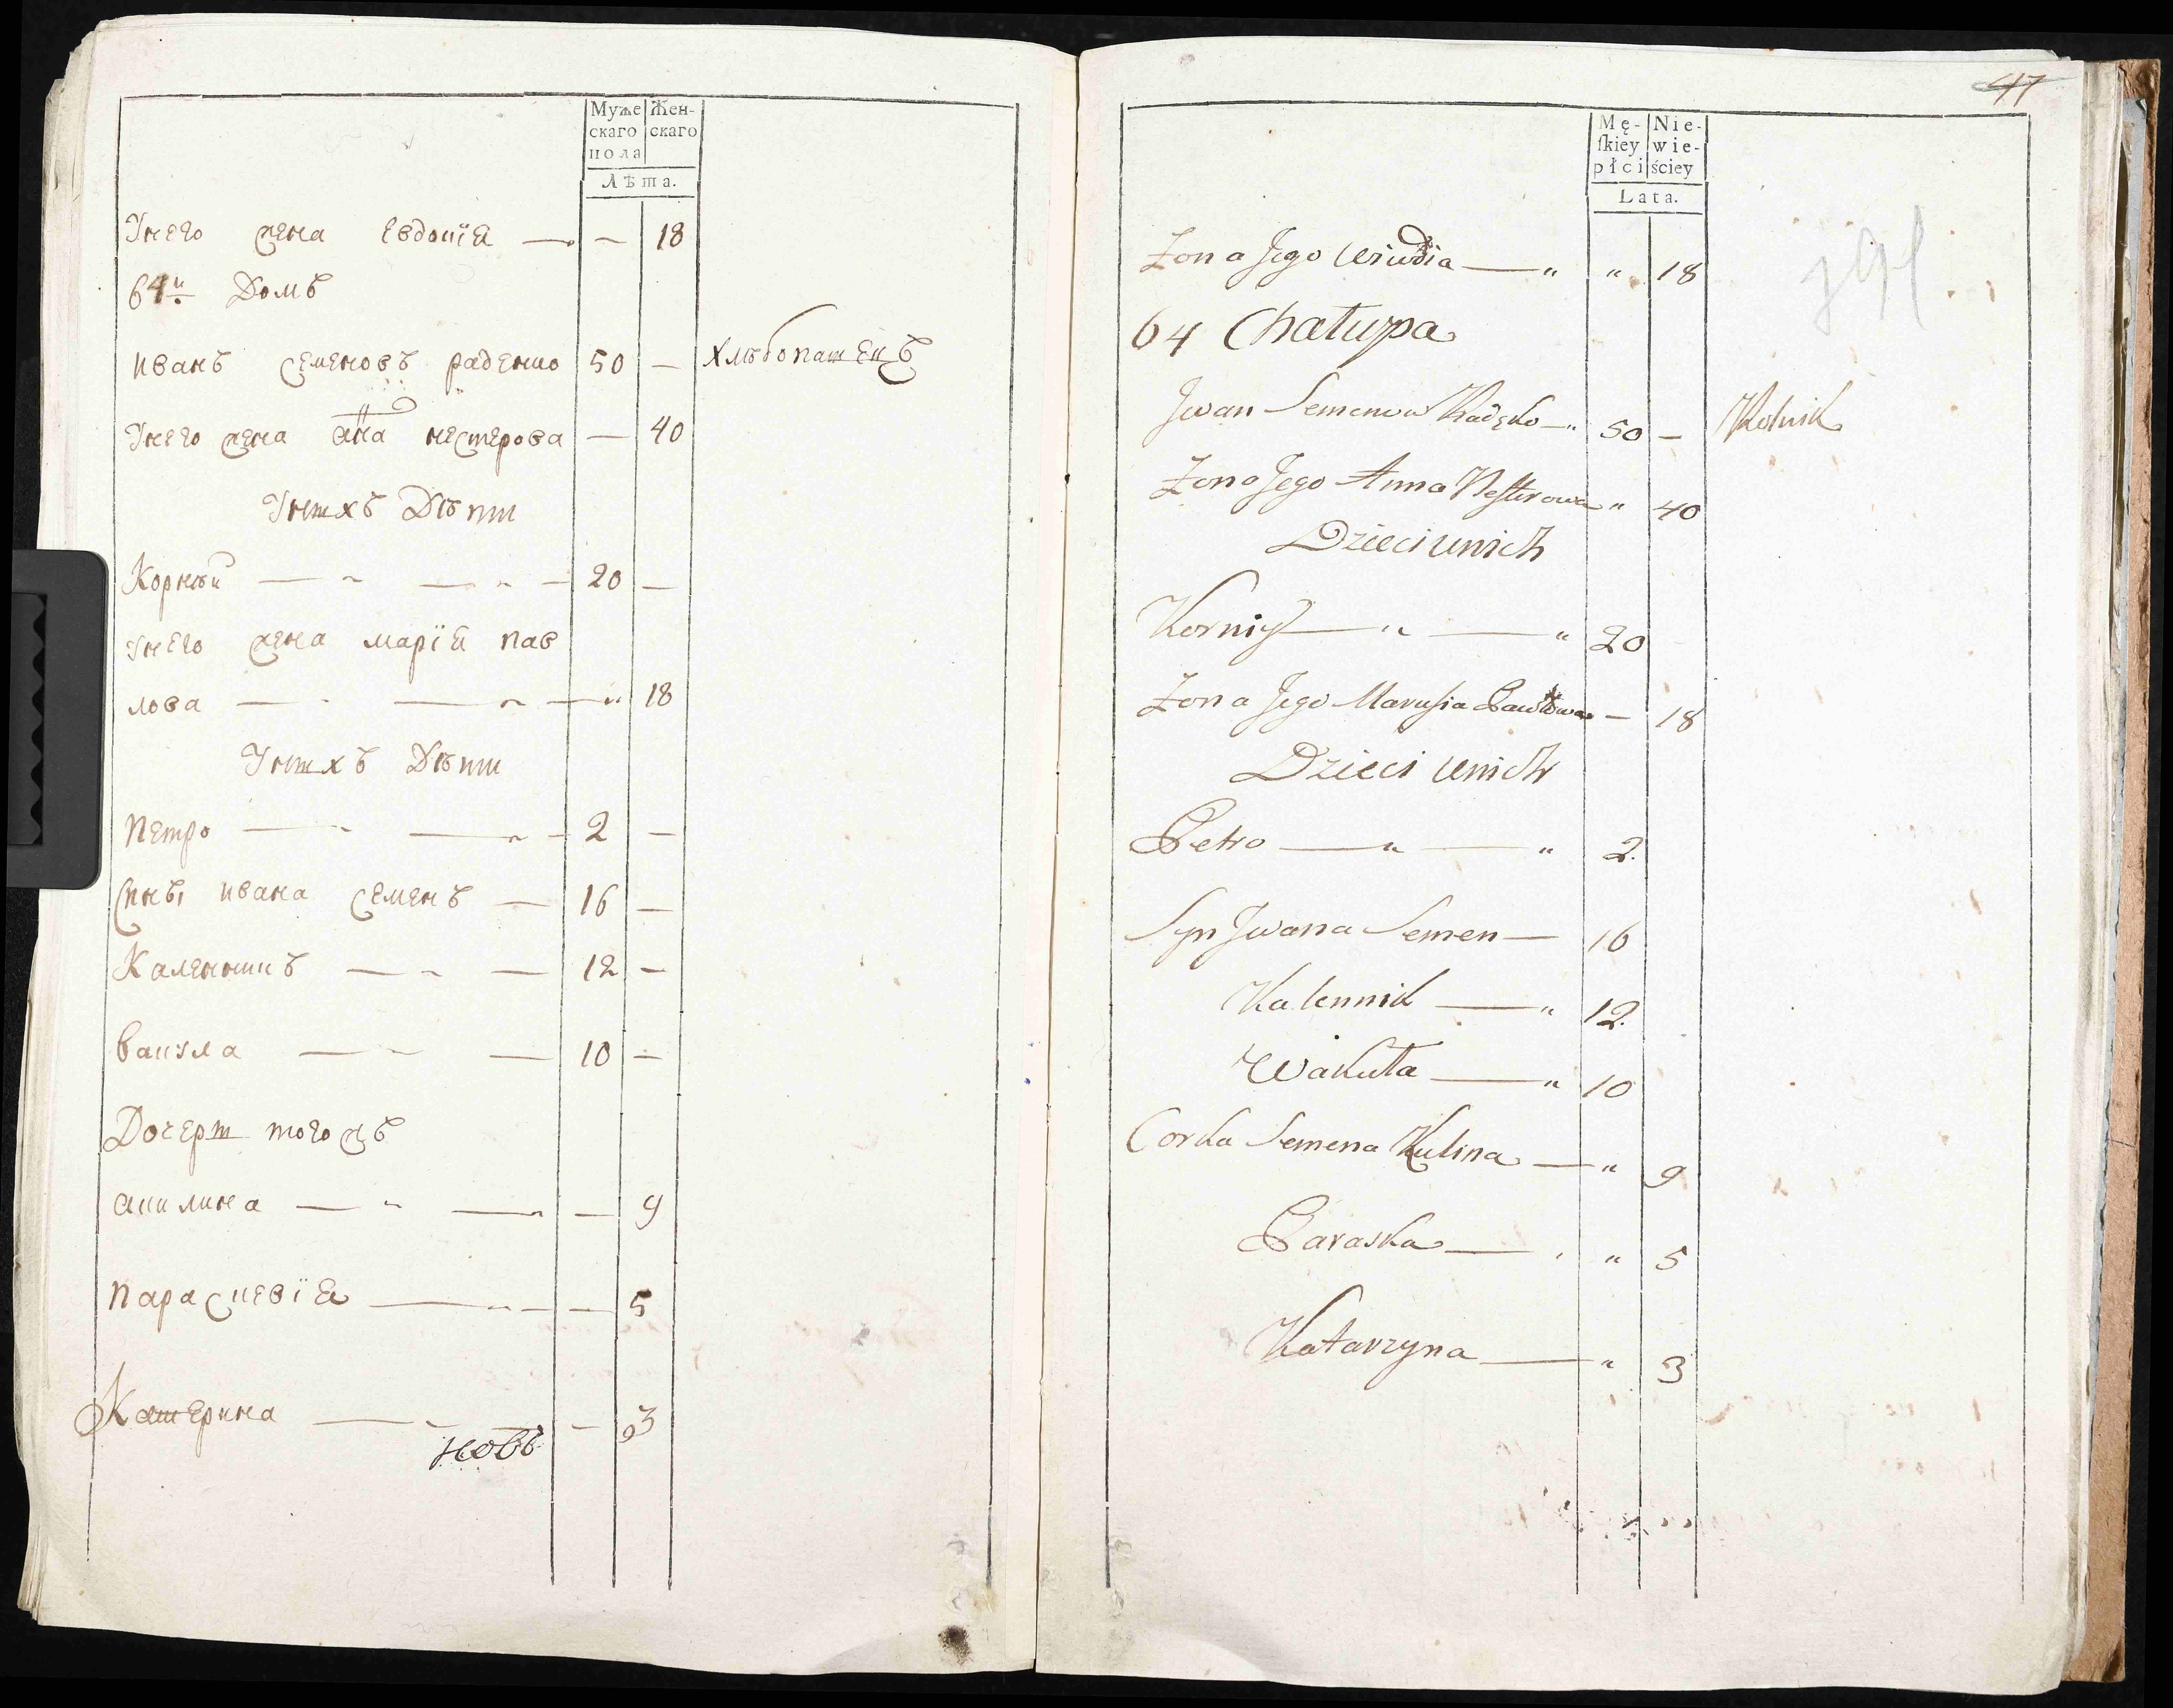 Муже Жен-
скаго скаго
пола
Лѣта.
Унего жена Евдокїя — — 18
64й Домъ
иванъ семеновъ раденко 50 — хлѣбопашецъ
Унего жена анна нестерова — 40
Унихъ Дѣти
Корнѣй — „ — „ — 20 —
Унего жена марїя пав
лова — „ — „ — „ 18
Унихъ Дѣти
петро — „ — „ — 2 —
сины ивана семенъ — 16 —
Каленникъ — „ — 12 —
вакула — „ — 10 —
Дочери тогожъ
акилина — „ — „ — 9
параскевїя — „ — — 5
Катерина — „ — 3
новъ
47
Mę- Nie-
ſkiey wie-
płci ściey
Lata.
Zona Jego Wiwdia — „ „ 18
64 Chałupa
Jwan Semenow Radęko — „ 50 — Rolnik
Zona Jego Anna Nesterowa „ 40
Dzieci unich
Korniy — „ — „ 20
Zona Jego Marusia Pawłowa — 18
Dzieci unich
Petro — „ — „ 2.
Syn Jwana Semen — 16
Kalennik — „ 12.
Wakuła — „ 10
Corka Semena Kulina — „ 9
Paraska — „ „ 5
Katarzyna — „ 3